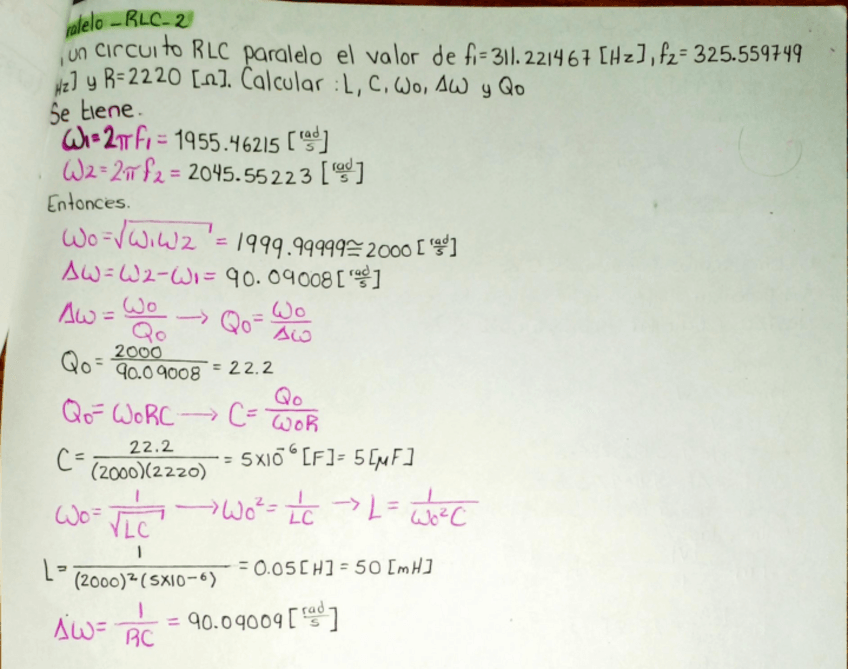 ralelo - RLC - 2
un circuito RLC paralelo el valor de f₁=311.221467 [Hz], f₂=325.559749
Hz] y R=2220 [Ω]. Calcular: L, C, ω₀, Δω y Q₀
Se tiene.
ω₁=2πf₁=1955.46215 [rad/s]
ω₂=2πf₂=2045.55223 [rad/s]
Entonces.
ω₀=√(ω₁ω₂)=1999.99999≅2000 [rad/s]
Δω=ω₂-ω₁=90.09008 [rad/s]
Δω=ω₀/Q₀ → Q₀=ω₀/Δω
Q₀=2000/90.09008=22.2
Q₀=ω₀RC → C=Q₀/ω₀R
C=22.2/(2000)(2220)=5x10⁻⁶ [F]=5 [μF]
ω₀=1/√LC → ω₀²=1/LC → L=1/ω₀²C
L=1/(2000)²(5x10-6)=0.05 [H]=50 [mH]
Δω=1/RC=90.09009 [rad/s]